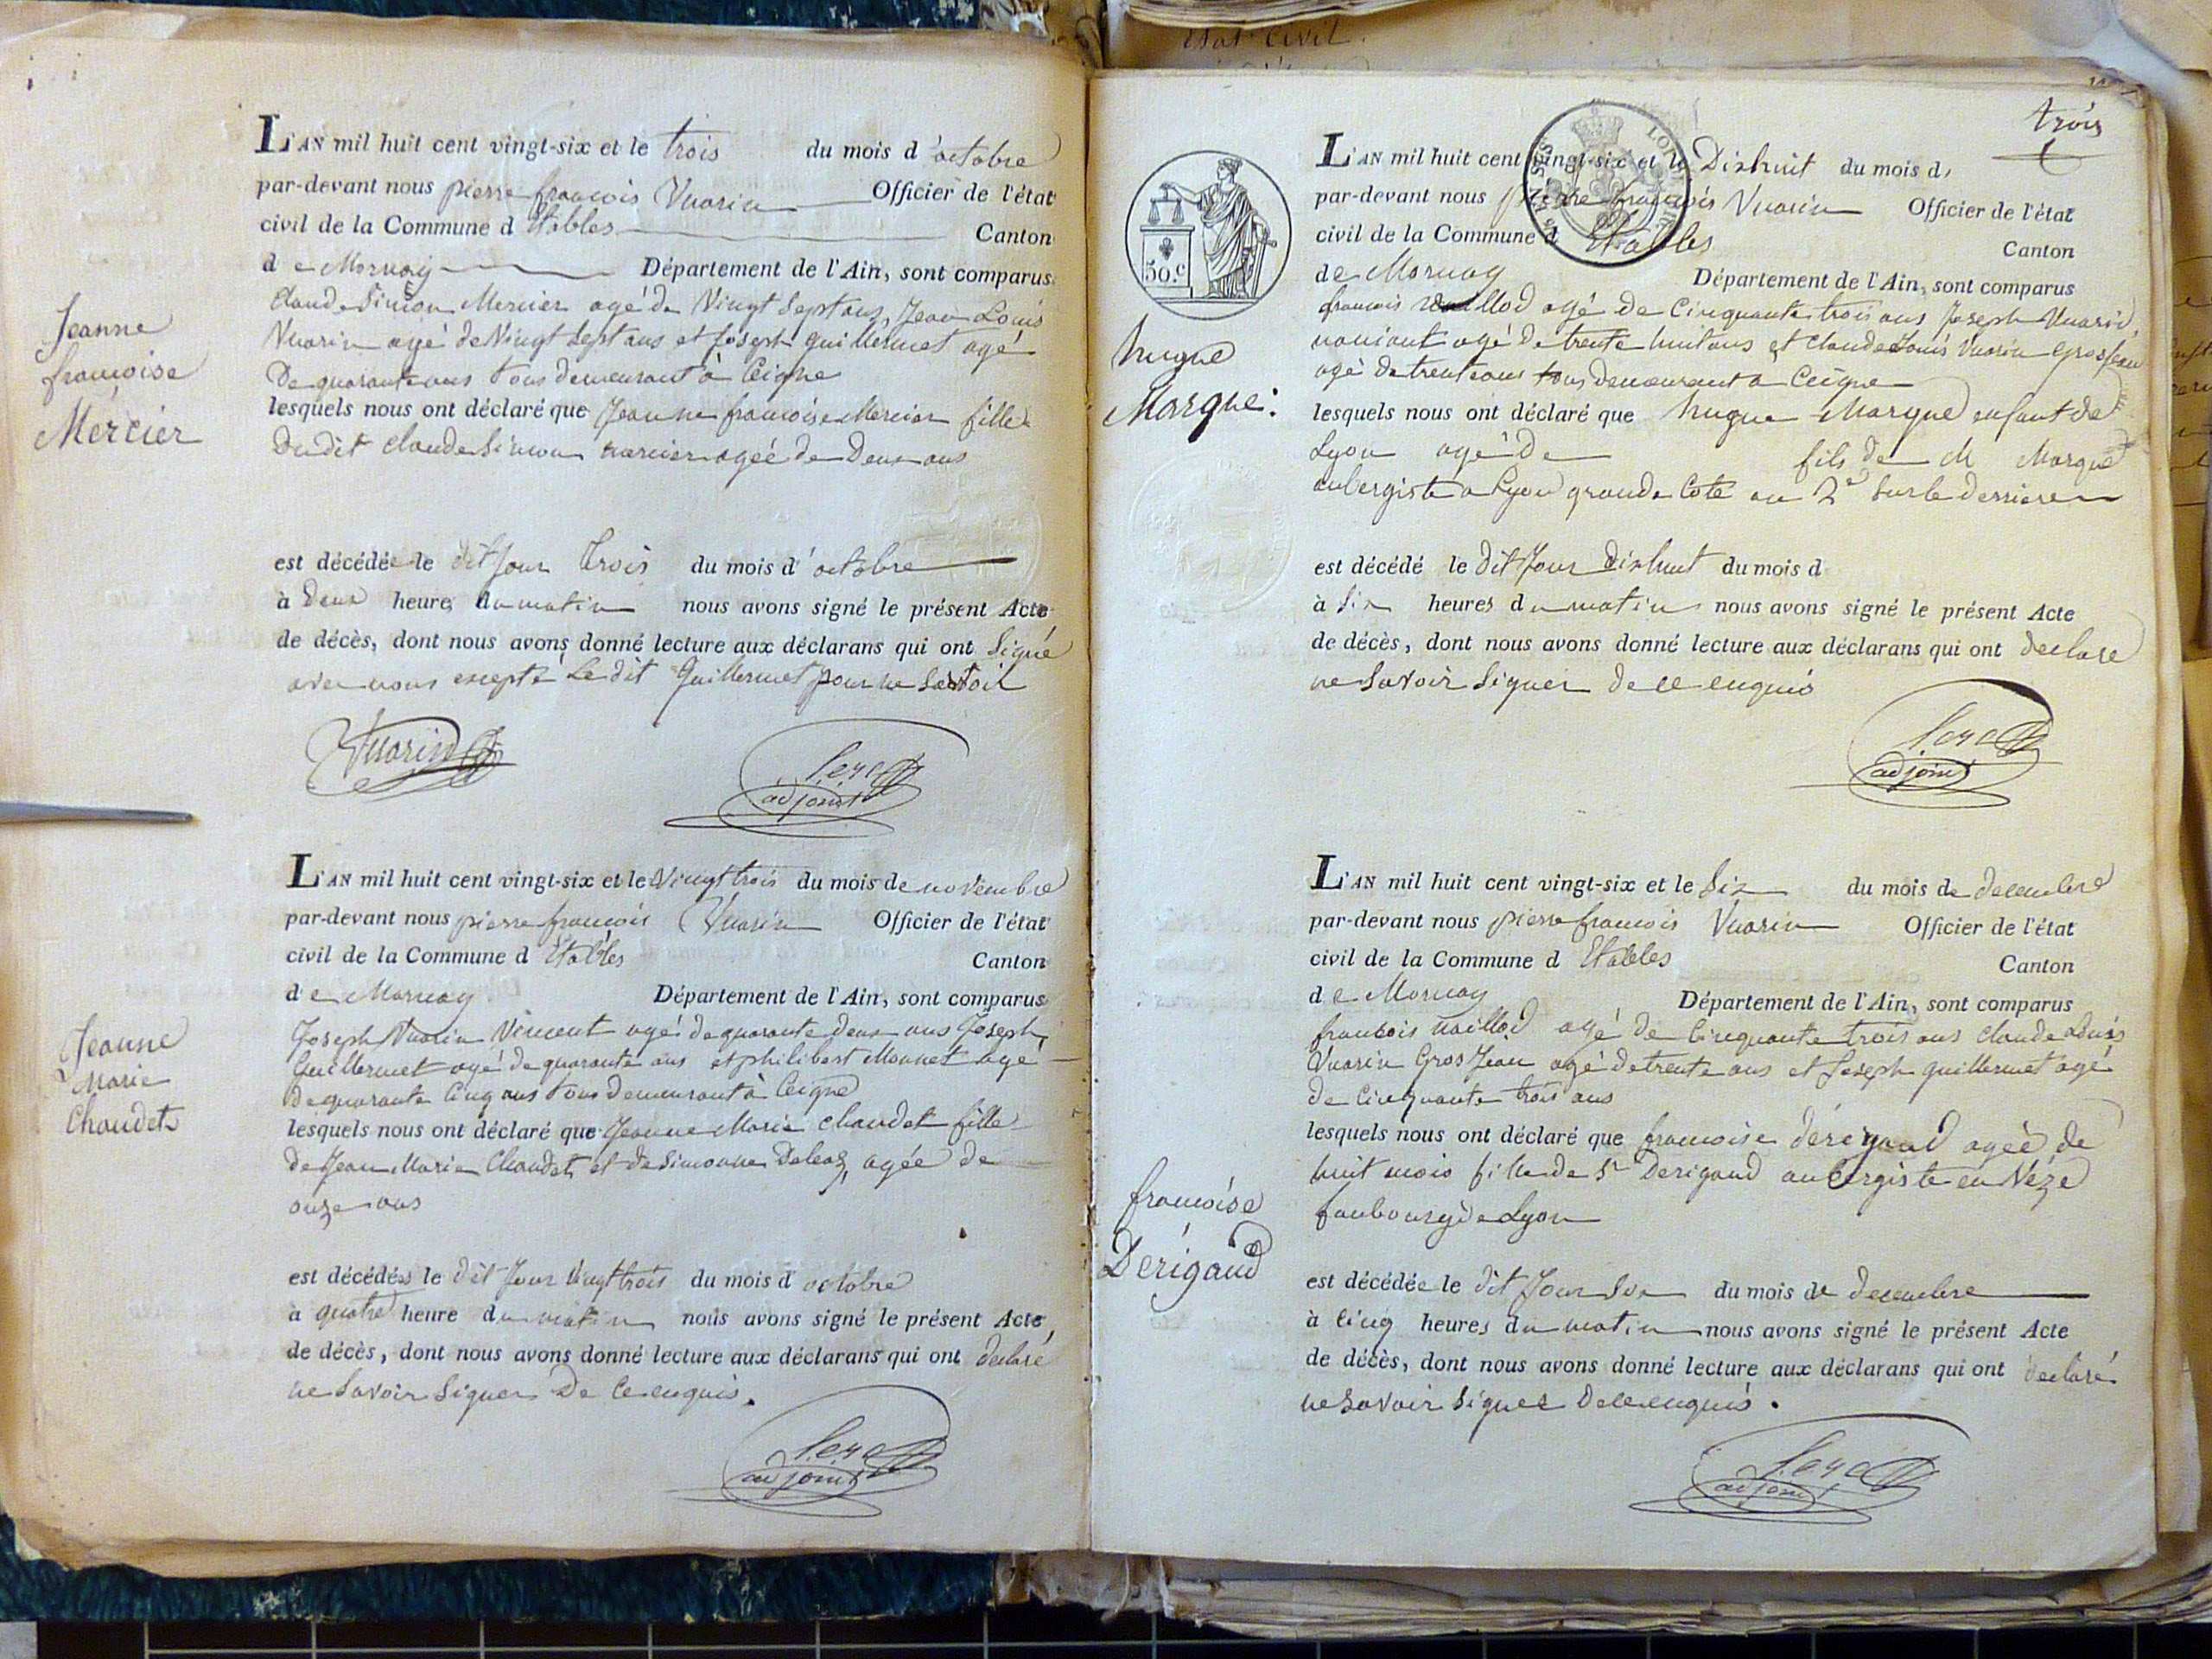 L'AN mil huit cent vingt-six et le trois du mois d'octobre
par-devant nous pierre françois Vuarin Officier de l'état
civil de la Commune d Etables Canton
de Mornay Département de l'Ain, sont comparus
Claude Simon Mercier agé de Vingt Sept ans, Jean Louis
Vuarin agé de Vingt Sept ans et Joseph guillermet agé
De quarante ans tous demeurant à Ceigne
lesquels nous ont déclaré que Jeanne françoise Mercier fille
Dudit Claude Simon mercier agée de Deux ans
est décédée le dit Jour trois du mois d'octobre
à Deux heures du matin nous avons signé le présent Acte
de décès, dont nous avons donné lecture aux déclarans qui ont Signé
avec nous excepté Le dit Guillermet pour ne Savoir
Jeanne
françoise
Mercier
Vuarin
adjoint
L'AN mil huit cent vingt-six et le Vingt trois du mois de novembre
par-devant nous pierre françois Vuarin Officier de l'état
civil de la Commune d Etables Canton
de Mornay Département de l'Ain, sont comparus
Joseph Vuarin Vincent agé de quarante deux ans Joseph
Guillermet agé de quarante ans et philibert Monnet agé
De quarante Cinq ans tous demeurant à Ceigne
lesquels nous ont déclaré que Jeanne Marie Chaudet fille
de Jean Marie Chaudet et de Simonne agée de
onze ans
est décédée le dit Jour Vingt trois du mois d octobre
à quatre heure du matin nous avons signé le présent Acte
de décès, dont nous avons donné lecture aux déclarans qui ont declaré
ne Savoir Signer De Ce enquis.
Jeanne
Marie
Chaudet
adjoint
trois
L'AN mil huit cent vingt-six et le Dixhuit du mois d
par-devant nous pierre françois Vuarin Officier de l'état
civil de la Commune d Etables Canton
de Mornay Département de l'Ain, sont comparus
françois agé de Cinquante trois ans Joseph Vuarin
agé de trente huit ans et Claude Louis Vuarin Grosjean
agé de trente ans tous demeurant a Ceigne
lesquels nous ont déclaré que hugue Marque enfant de
Lyon agé De fils de M Marque
aubergiste a Lyon grande Cote au 2e Sur le derriere
est décédé le Dit Jour Dixhuit du mois d
à Six heures du matin nous avons signé le présent Acte
de décès, dont nous avons donné lecture aux déclarans qui ont declaré
ne Savoir Signer de ce enquis
50.c
hugue
Marque:
adjoint
L'AN mil huit cent vingt-six et le Six du mois de decembre
par-devant nous pierre françois Vuarin Officier de l'état
civil de la Commune d Etables Canton
de Mornay Département de l'Ain, sont comparus
françois agé de Cinquante trois ans Claude Louis
Vuarin Gros Jean agé de trente ans et Joseph guillermet agé
de Cinquante trois ans
lesquels nous ont déclaré que françoise derigaud agée de
huit mois fille de Sr Derigaud aubergiste en Veze
faubourg de Lyon
est décédée le dit Jour Six du mois de decembre
à Cinq heures du matin nous avons signé le présent Acte
de décès, dont nous avons donné lecture aux déclarans qui ont declaré
ne Savoir Signer de ce enquis.
françoise
Derigaud
adjoint